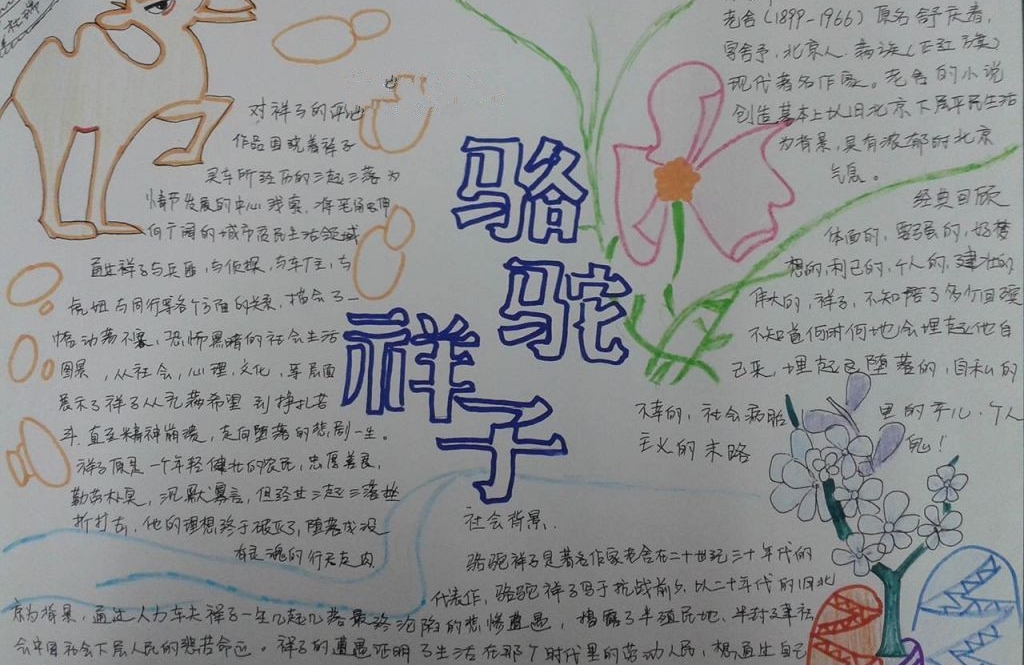 老舍(1899-1966)原名舒庆春,
字舍予,北京人,满族(正红旗)
现代著名作家。老舍的小说
创造基本上以旧北京下层平民生活
为背景,具有浓郁的北京
气息。
对祥子的评论
作品围绕着祥子
买车所经历的三起三落为
情节发展的中心线索,将笔触伸
向广阔的城市贫民生活领域
通过祥子与兵匪,与侦探,与车厂主,与
虎妞与同行等各个方面的关系,描绘了一
幅动荡不安,恐怖黑暗的社会生活
图景,从社会,心理,文化,等层面
展示了祥子从充满希望到挣扎苦
斗直至精神崩溃,走向堕落的悲剧一生。
祥子原是一个年轻健壮的农民,忠厚善良,
勤劳朴实,沉默寡言,但经过三起三落挫
折打击,他的理想终于破灭了,堕落成没
有灵魂的行尸走肉
骆驼
祥子
经典回顾
体面的,要强的,好梦
想的,利己的,个人的,健壮的
伟大的,祥子,不知陪了多少回殡
不知道何时何地会埋起他自
己来,埋起这堕落的,自私的
不幸的,社会病胎里的产儿,个人
主义的末路鬼!
社会背景
骆驼祥子是著名作家老舍在二十世纪三十年代的
代表作,骆驼祥子写于抗战前夕,以二十年代的旧北
京为背景,通过人力车夫祥子一生几起几落最终沦陷的悲惨遭遇,揭露了半殖民地、半封建社
会中国社会下层人民的悲苦命运。祥子的遭遇证明了生活在那个时代里的劳动人民,想通过自己